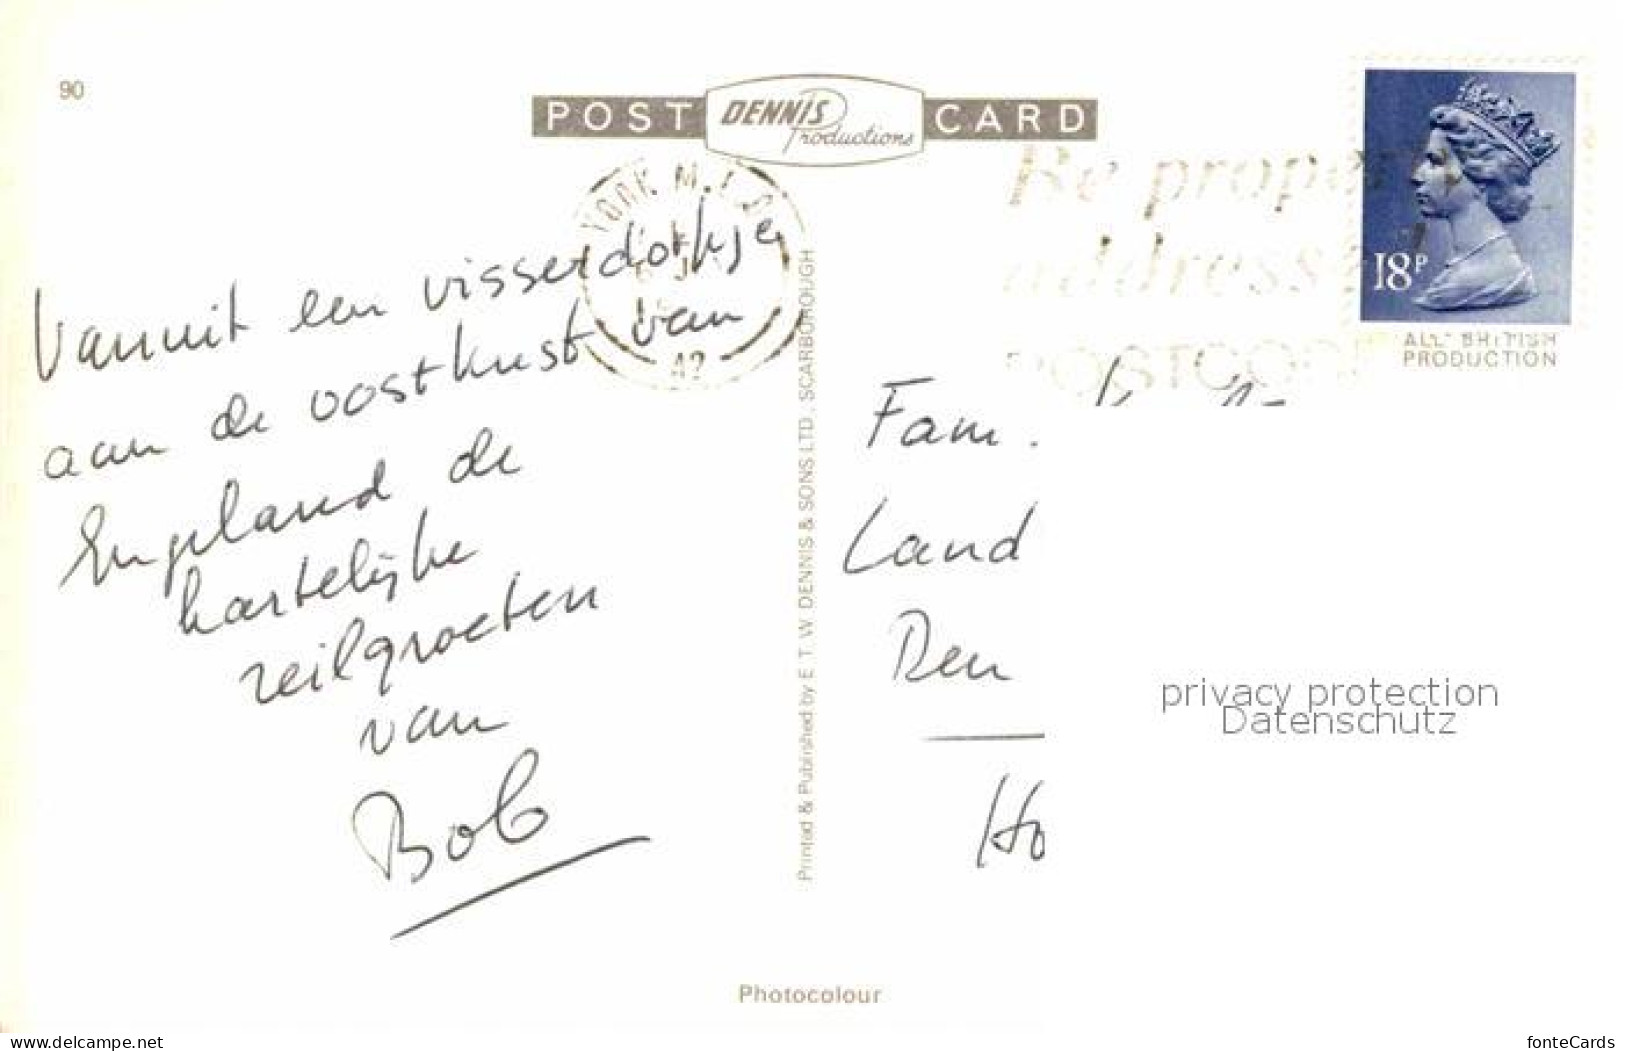 90
POST DENNIS Productions CARD
YORK M.L.O.
42
Be proper
address
POSTCOD
18P
ALL BRITISH
PRODUCTION
Vanuit een visserdorpje
aan de oostkust van
Engeland de
hartelijke
zeilgroeten
van
Bob
Printed & Published by E. T. W. DENNIS & SONS LTD., SCARBOROUGH
Fam.
Land
Den
Ho
privacy protection
Datenschutz
Photocolour
www.delcampe.net
fonteCards